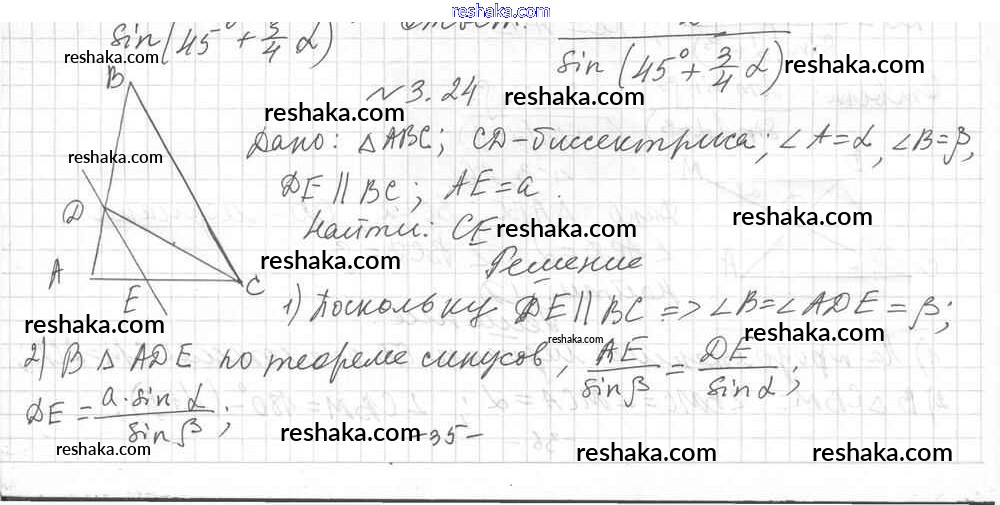 reshaka.com
sin(45°+3/4 α) Ответ:
sin(45°+3/4 α) reshaka.com
reshaka.com
№3.24 reshaka.com
B
reshaka.com
Дано: △ABC; CD-биссектриса; ∠A=α, ∠B=β,
reshaka.com
DE || BC; AE=a.
D reshaka.com
Найти: CE
reshaka.com
A E C
reshaka.com
Решение
1) Поскольку DE || BC => ∠B=∠ADE=β;
reshaka.com reshaka.com reshaka.com
2) В △ ADE по теореме синусов, AE/sinβ = DE/sinα;
DE = a·sin α/sin β;
reshaka.com reshaka.com -35- reshaka.com reshaka.com